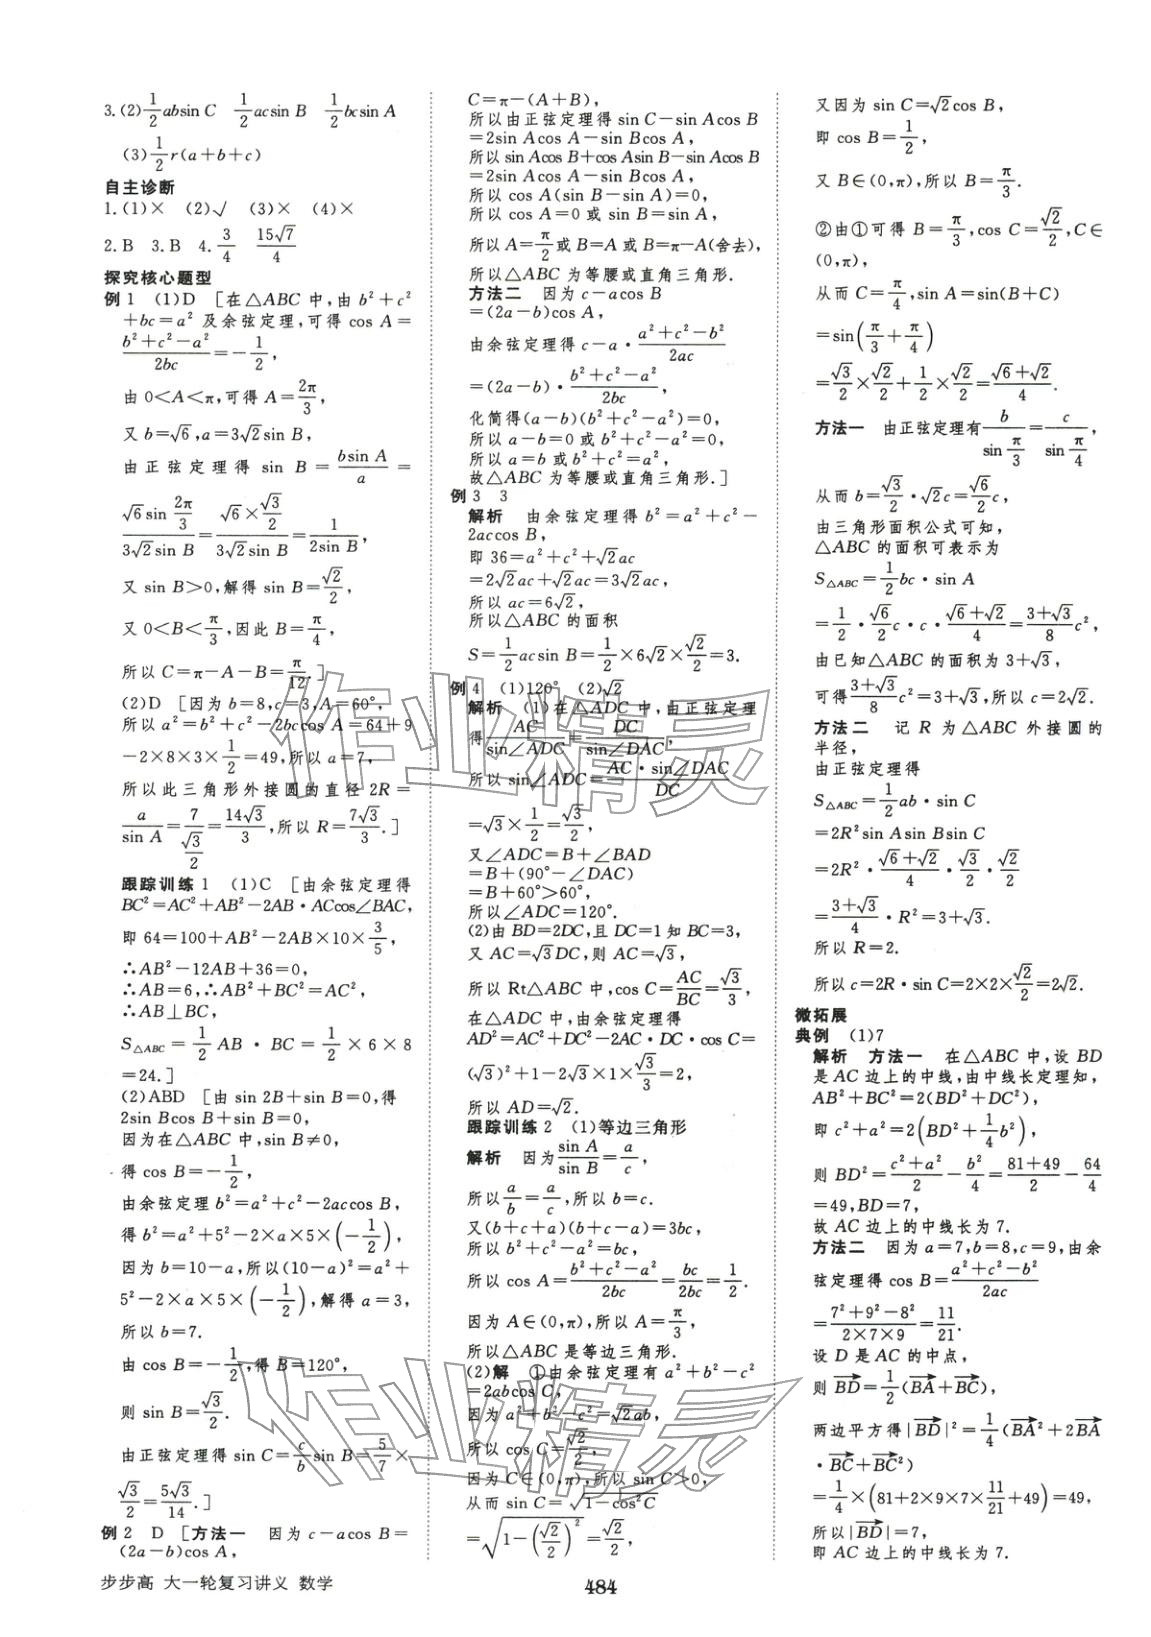 3.(2)$\frac{1}{2}$absin C　$\frac{1}{2}$acsin B　$\frac{1}{2}$bcsin A
(3)$\frac{1}{2}$r(a+b+c)
自主诊断
1.(1)×　(2)√　(3)×　(4)×
2.B　3.B　4.$\frac{3}{4}$　$\frac{15\sqrt{7}}{4}$
探究核心题型
例1　(1)D　[在△ABC 中,由 b²+c²
+bc=a² 及余弦定理,可得 cos A=
$\frac{b²+c²-a²}{2bc}$=-$\frac{1}{2}$,
由 0<A<π,可得 A=$\frac{2π}{3}$,
又 b=√6,a=3√2sin B,
由正弦定理得 sin B=$\frac{b\sin A}{a}$=
$\frac{\sqrt{6}\sin\frac{2π}{3}}{3\sqrt{2}\sin B}$=$\frac{\sqrt{6}×\frac{\sqrt{3}}{2}}{3\sqrt{2}\sin B}$=$\frac{1}{2\sin B}$,
又 sin B>0,解得 sin B=$\frac{\sqrt{2}}{2}$,
又 0<B<$\frac{π}{3}$,因此 B=$\frac{π}{4}$,
所以 C=π-A-B=$\frac{π}{12}$.]
(2)D　[因为 b=8,c=3,A=60°,
所以 a²=b²+c²-2bccos A=64+9
-2×8×3×$\frac{1}{2}$=49,所以 a=7,
所以此三角形外接圆的直径 2R=
$\frac{a}{\sin A}$=$\frac{7}{\frac{\sqrt{3}}{2}}$=$\frac{14\sqrt{3}}{3}$,所以 R=$\frac{7\sqrt{3}}{3}$.]
跟踪训练1　(1)C　[由余弦定理得
BC²=AC²+AB²-2AB·ACcos∠BAC,
即 64=100+AB²-2AB×10×$\frac{3}{5}$,
∴AB²-12AB+36=0,
∴AB=6,∴AB²+BC²=AC²,
∴AB⊥BC,
S△ABC=$\frac{1}{2}$AB·BC=$\frac{1}{2}$×6×8
=24.]
(2)ABD　[由 sin 2B+sin B=0,得
2sin Bcos B+sin B=0,
因为在△ABC 中,sin B≠0,
得 cos B=-$\frac{1}{2}$,
由余弦定理 b²=a²+c²-2accos B,
得 b²=a²+5²-2×a×5×(-$\frac{1}{2}$),
因为 b=10-a,所以(10-a)²=a²+
5²-2×a×5×(-$\frac{1}{2}$),解得 a=3,
所以 b=7.
由 cos B=-$\frac{1}{2}$,得 B=120°,
则 sin B=$\frac{\sqrt{3}}{2}$.
由正弦定理得 sin C=$\frac{c}{b}$sin B=$\frac{5}{7}$×
$\frac{\sqrt{3}}{2}$=$\frac{5\sqrt{3}}{14}$.]
例2　D　[方法一　因为 c-acos B=
(2a-b)cos A,
C=π-(A+B),
所以由正弦定理得 sin C-sin Acos B
=2sin Acos A-sin Bcos A,
所以 sin Acos B+cos Asin B-sin Acos B
=2sin Acos A-sin Bcos A,
所以 cos A(sin B-sin A)=0,
所以 cos A=0 或 sin B=sin A,
所以 A=$\frac{π}{2}$或 B=A 或 B=π-A(舍去),
所以△ABC 为等腰或直角三角形.
方法二　因为 c-acos B
=(2a-b)cos A,
由余弦定理得 c-a·$\frac{a²+c²-b²}{2ac}$
=(2a-b)·$\frac{b²+c²-a²}{2bc}$,
化简得(a-b)(b²+c²-a²)=0,
所以 a-b=0 或 b²+c²-a²=0,
所以 a=b 或 b²+c²=a²,
故△ABC 为等腰或直角三角形.]
例3　3
解析　由余弦定理得 b²=a²+c²-
2accos B,
即 36=a²+c²+√2ac
=2√2ac+√2ac=3√2ac,
所以 ac=6√2,
所以△ABC 的面积
S=$\frac{1}{2}$acsin B=$\frac{1}{2}$×6√2×$\frac{\sqrt{2}}{2}$=3.
例4　(1)120°　(2)√2
解析　(1)在△ADC 中,由正弦定理
得$\frac{AC}{\sin∠ADC}$=$\frac{DC}{\sin∠DAC}$,
所以 sin∠ADC=$\frac{AC·\sin∠DAC}{DC}$
=√3×$\frac{1}{2}$=$\frac{\sqrt{3}}{2}$,
又∠ADC=B+∠BAD
=B+(90°-∠DAC)
=B+60°>60°,
所以∠ADC=120°.
(2)由 BD=2DC,且 DC=1 知 BC=3,
又 AC=√3DC,则 AC=√3,
所以 Rt△ABC 中,cos C=$\frac{AC}{BC}$=$\frac{\sqrt{3}}{3}$,
在△ADC 中,由余弦定理得
AD²=AC²+DC²-2AC·DC·cos C=
(√3)²+1-2√3×1×$\frac{\sqrt{3}}{3}$=2,
所以 AD=√2.
跟踪训练2　(1)等边三角形
解析　因为$\frac{\sin A}{\sin B}$=$\frac{a}{c}$,
所以$\frac{a}{b}$=$\frac{a}{c}$,所以 b=c.
又(b+c+a)(b+c-a)=3bc,
所以 b²+c²-a²=bc,
所以 cos A=$\frac{b²+c²-a²}{2bc}$=$\frac{bc}{2bc}$=$\frac{1}{2}$.
因为 A∈(0,π),所以 A=$\frac{π}{3}$,
所以△ABC 是等边三角形.
(2)解　①由余弦定理有 a²+b²-c²
=2abcos C,
因为 a²+b²-c²=√2ab,
所以 cos C=$\frac{\sqrt{2}}{2}$,
因为 C∈(0,π),所以 sin C>0,
从而 sin C=$\sqrt{1-\cos²C}$
=$\sqrt{1-(\frac{\sqrt{2}}{2})²}$=$\frac{\sqrt{2}}{2}$,
又因为 sin C=√2cos B,
即 cos B=$\frac{1}{2}$,
又 B∈(0,π),所以 B=$\frac{π}{3}$.
②由①可得 B=$\frac{π}{3}$,cos C=$\frac{\sqrt{2}}{2}$,C∈
(0,π),
从而 C=$\frac{π}{4}$,sin A=sin(B+C)
=sin($\frac{π}{3}$+$\frac{π}{4}$)
=$\frac{\sqrt{3}}{2}$×$\frac{\sqrt{2}}{2}$+$\frac{1}{2}$×$\frac{\sqrt{2}}{2}$=$\frac{\sqrt{6}+\sqrt{2}}{4}$.
方法一　由正弦定理有$\frac{b}{\sin\frac{π}{3}}$=$\frac{c}{\sin\frac{π}{4}}$,
从而 b=$\frac{\sqrt{3}}{2}$·√2c=$\frac{\sqrt{6}}{2}$c,
由三角形面积公式可知,
△ABC 的面积可表示为
S△ABC=$\frac{1}{2}$bc·sin A
=$\frac{1}{2}$·$\frac{\sqrt{6}}{2}$c·c·$\frac{\sqrt{6}+\sqrt{2}}{4}$=$\frac{3+\sqrt{3}}{8}$c²,
由已知△ABC 的面积为 3+√3,
可得$\frac{3+\sqrt{3}}{8}$c²=3+√3,所以 c=2√2.
方法二　记 R 为△ABC 外接圆的
半径,
由正弦定理得
S△ABC=$\frac{1}{2}$ab·sin C
=2R²sin Asin Bsin C
=2R²·$\frac{\sqrt{6}+\sqrt{2}}{4}$·$\frac{\sqrt{3}}{2}$·$\frac{\sqrt{2}}{2}$
=$\frac{3+\sqrt{3}}{4}$·R²=3+√3.
所以 R=2.
所以 c=2R·sin C=2×2×$\frac{\sqrt{2}}{2}$=2√2.
微拓展
典例　(1)7
解析　方法一　在△ABC 中,设 BD
是 AC 边上的中线,由中线长定理知,
AB²+BC²=2(BD²+DC²),
即 c²+a²=2(BD²+$\frac{1}{4}$b²),
则 BD²=$\frac{c²+a²}{2}$-$\frac{b²}{4}$=$\frac{81+49}{2}$-$\frac{64}{4}$
=49,BD=7,
故 AC 边上的中线长为 7.
方法二　因为 a=7,b=8,c=9,由余
弦定理得 cos B=$\frac{a²+c²-b²}{2ac}$
=$\frac{7²+9²-8²}{2×7×9}$=$\frac{11}{21}$.
设 D 是 AC 的中点,
则 $\overrightarrow{BD}$=$\frac{1}{2}$($\overrightarrow{BA}$+$\overrightarrow{BC}$),
两边平方得|$\overrightarrow{BD}$|²=$\frac{1}{4}$($\overrightarrow{BA}$²+2$\overrightarrow{BA}$
·$\overrightarrow{BC}$+$\overrightarrow{BC}$²)
=$\frac{1}{4}$×(81+2×9×7×$\frac{11}{21}$+49)=49,
所以|$\overrightarrow{BD}$|=7,
即 AC 边上的中线长为 7.
步步高　大一轮复习讲义　数学
484
作业精灵
作业精灵